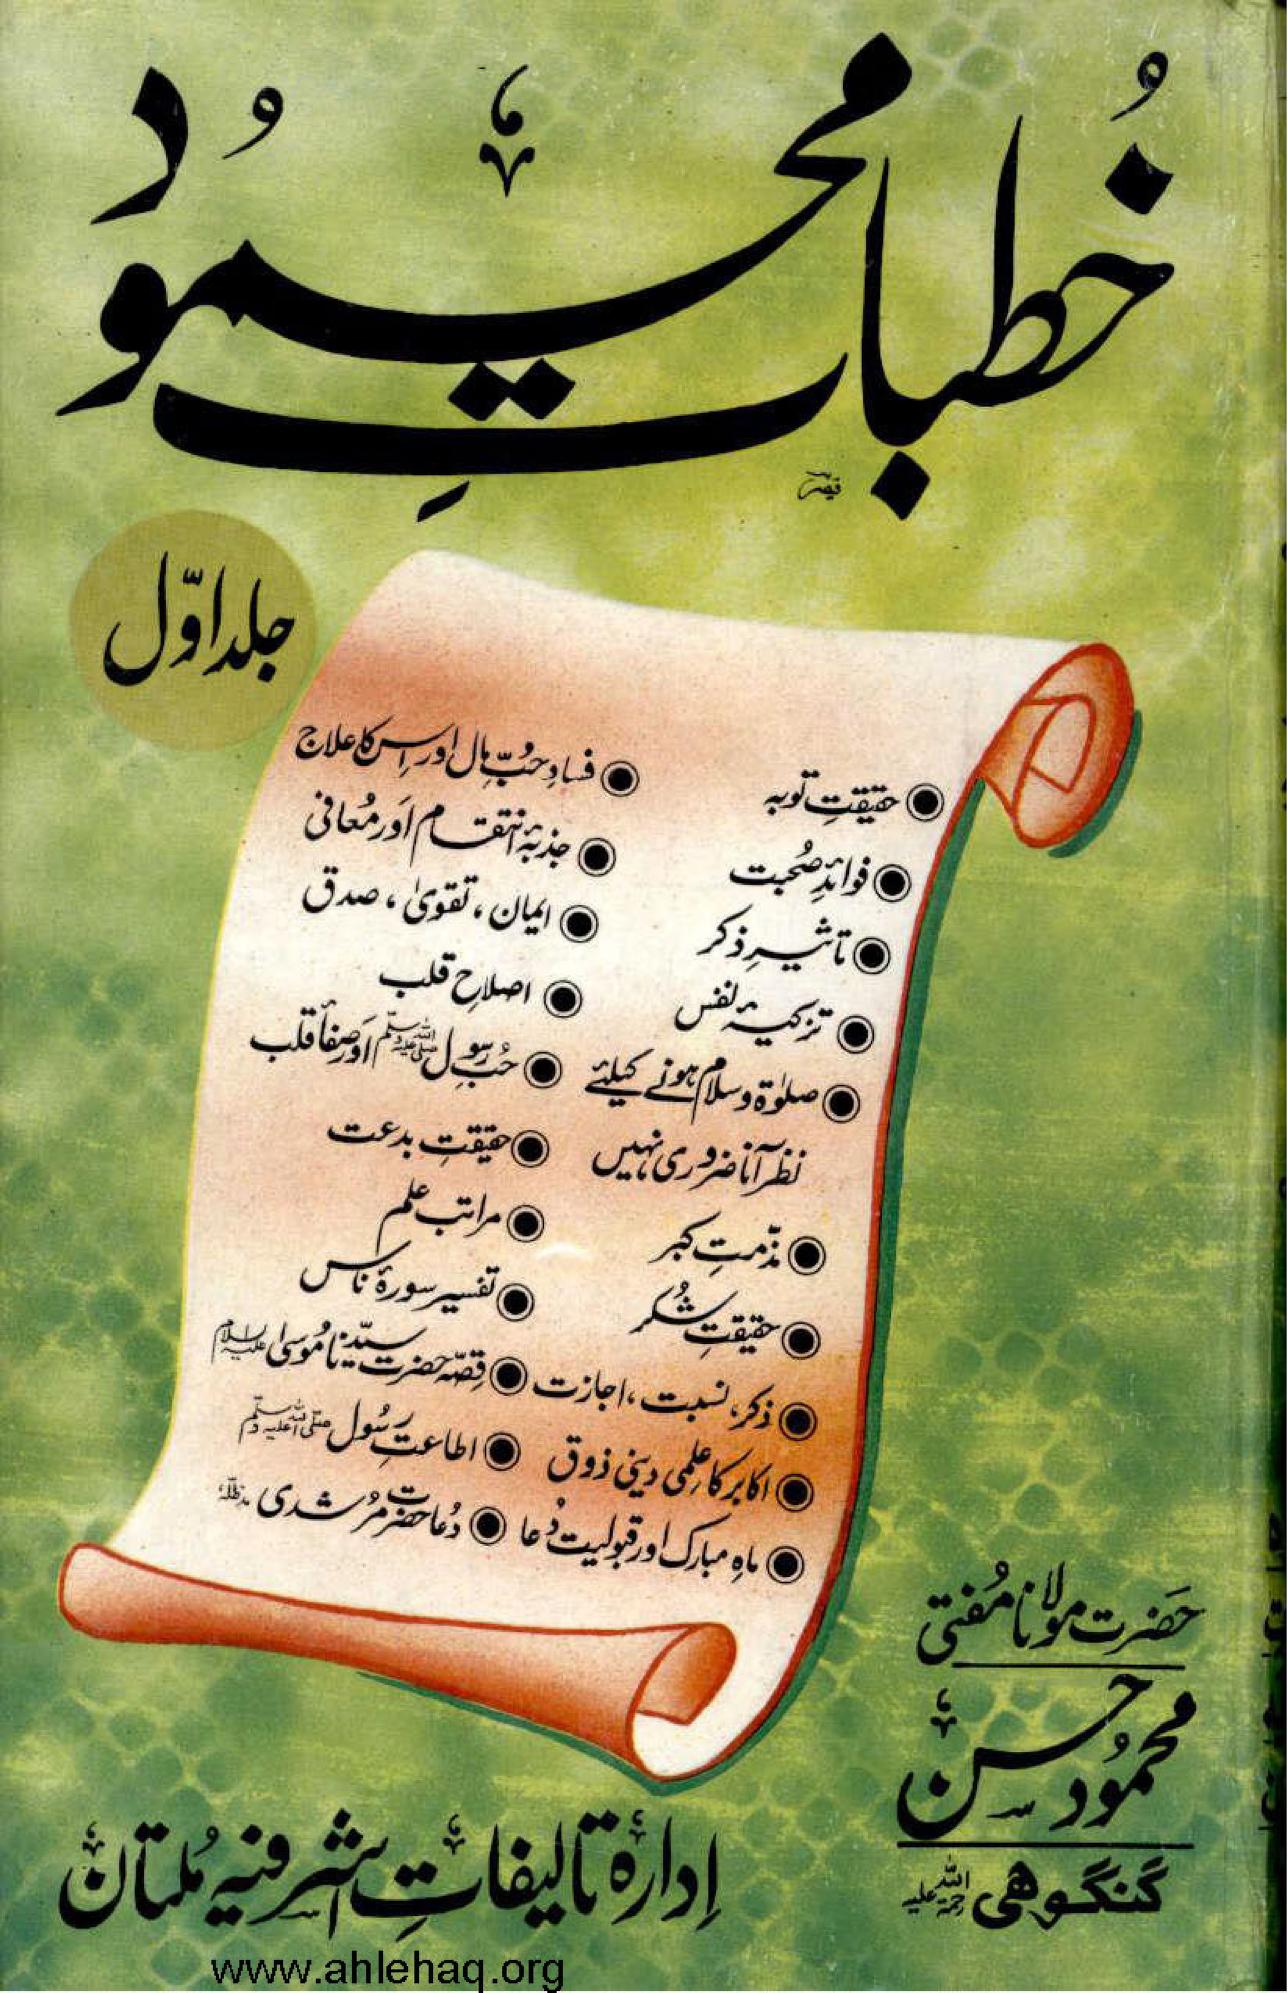 خُطباتِ محمُود
قیصر
جلد اوّل
حقیقتِ توبہ
فوائدِ صُحبت
تاثیرِ ذکر
تزکیۂ نفس
صلوٰۃ و سلام ہونے کیلئے
نظر آنا ضروری نہیں
مذّمتِ کبر
حقیقتِ شُکر
ذکر، نسبت، اجازت
اکابر کا علِمی دینی ذوق
ماہِ مبارک اور قبولیت دُعا
فسادِ حُبِّ مال اور اِس کا علاج
جذبۂ انتقام اَور مُعافی
ایمان، تقویٰ، صدق
اصلاحِ قلب
حُبِّ رسوُل صلی اللہ علیہ وسلم اَور صفاً قلب
حقیقتِ بدعت
مراتب علم
تفسیر سورۂ ناس
قِصّہ حضرت سیّدنا مُوسیٰ علیہ السلام
اطاعتِ رسُول صلّی اللہ علیہ وسلّم
دُعا حضرت مرُشدی مدظلّہٗ
حَضرت مولانا مُفتی
محمُود حسن
گنگوھی رحمۃ اللہ علیہ
اِدارہ تالیفاتِ اشرفیہ مُلتان
www.ahlehaq.org